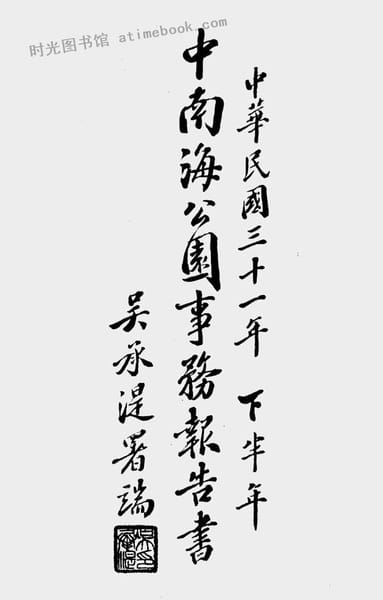 时光图书馆 atimebook.com
中華民國三十一年 下半年
中南海公園事務報告書
吴承湜署端